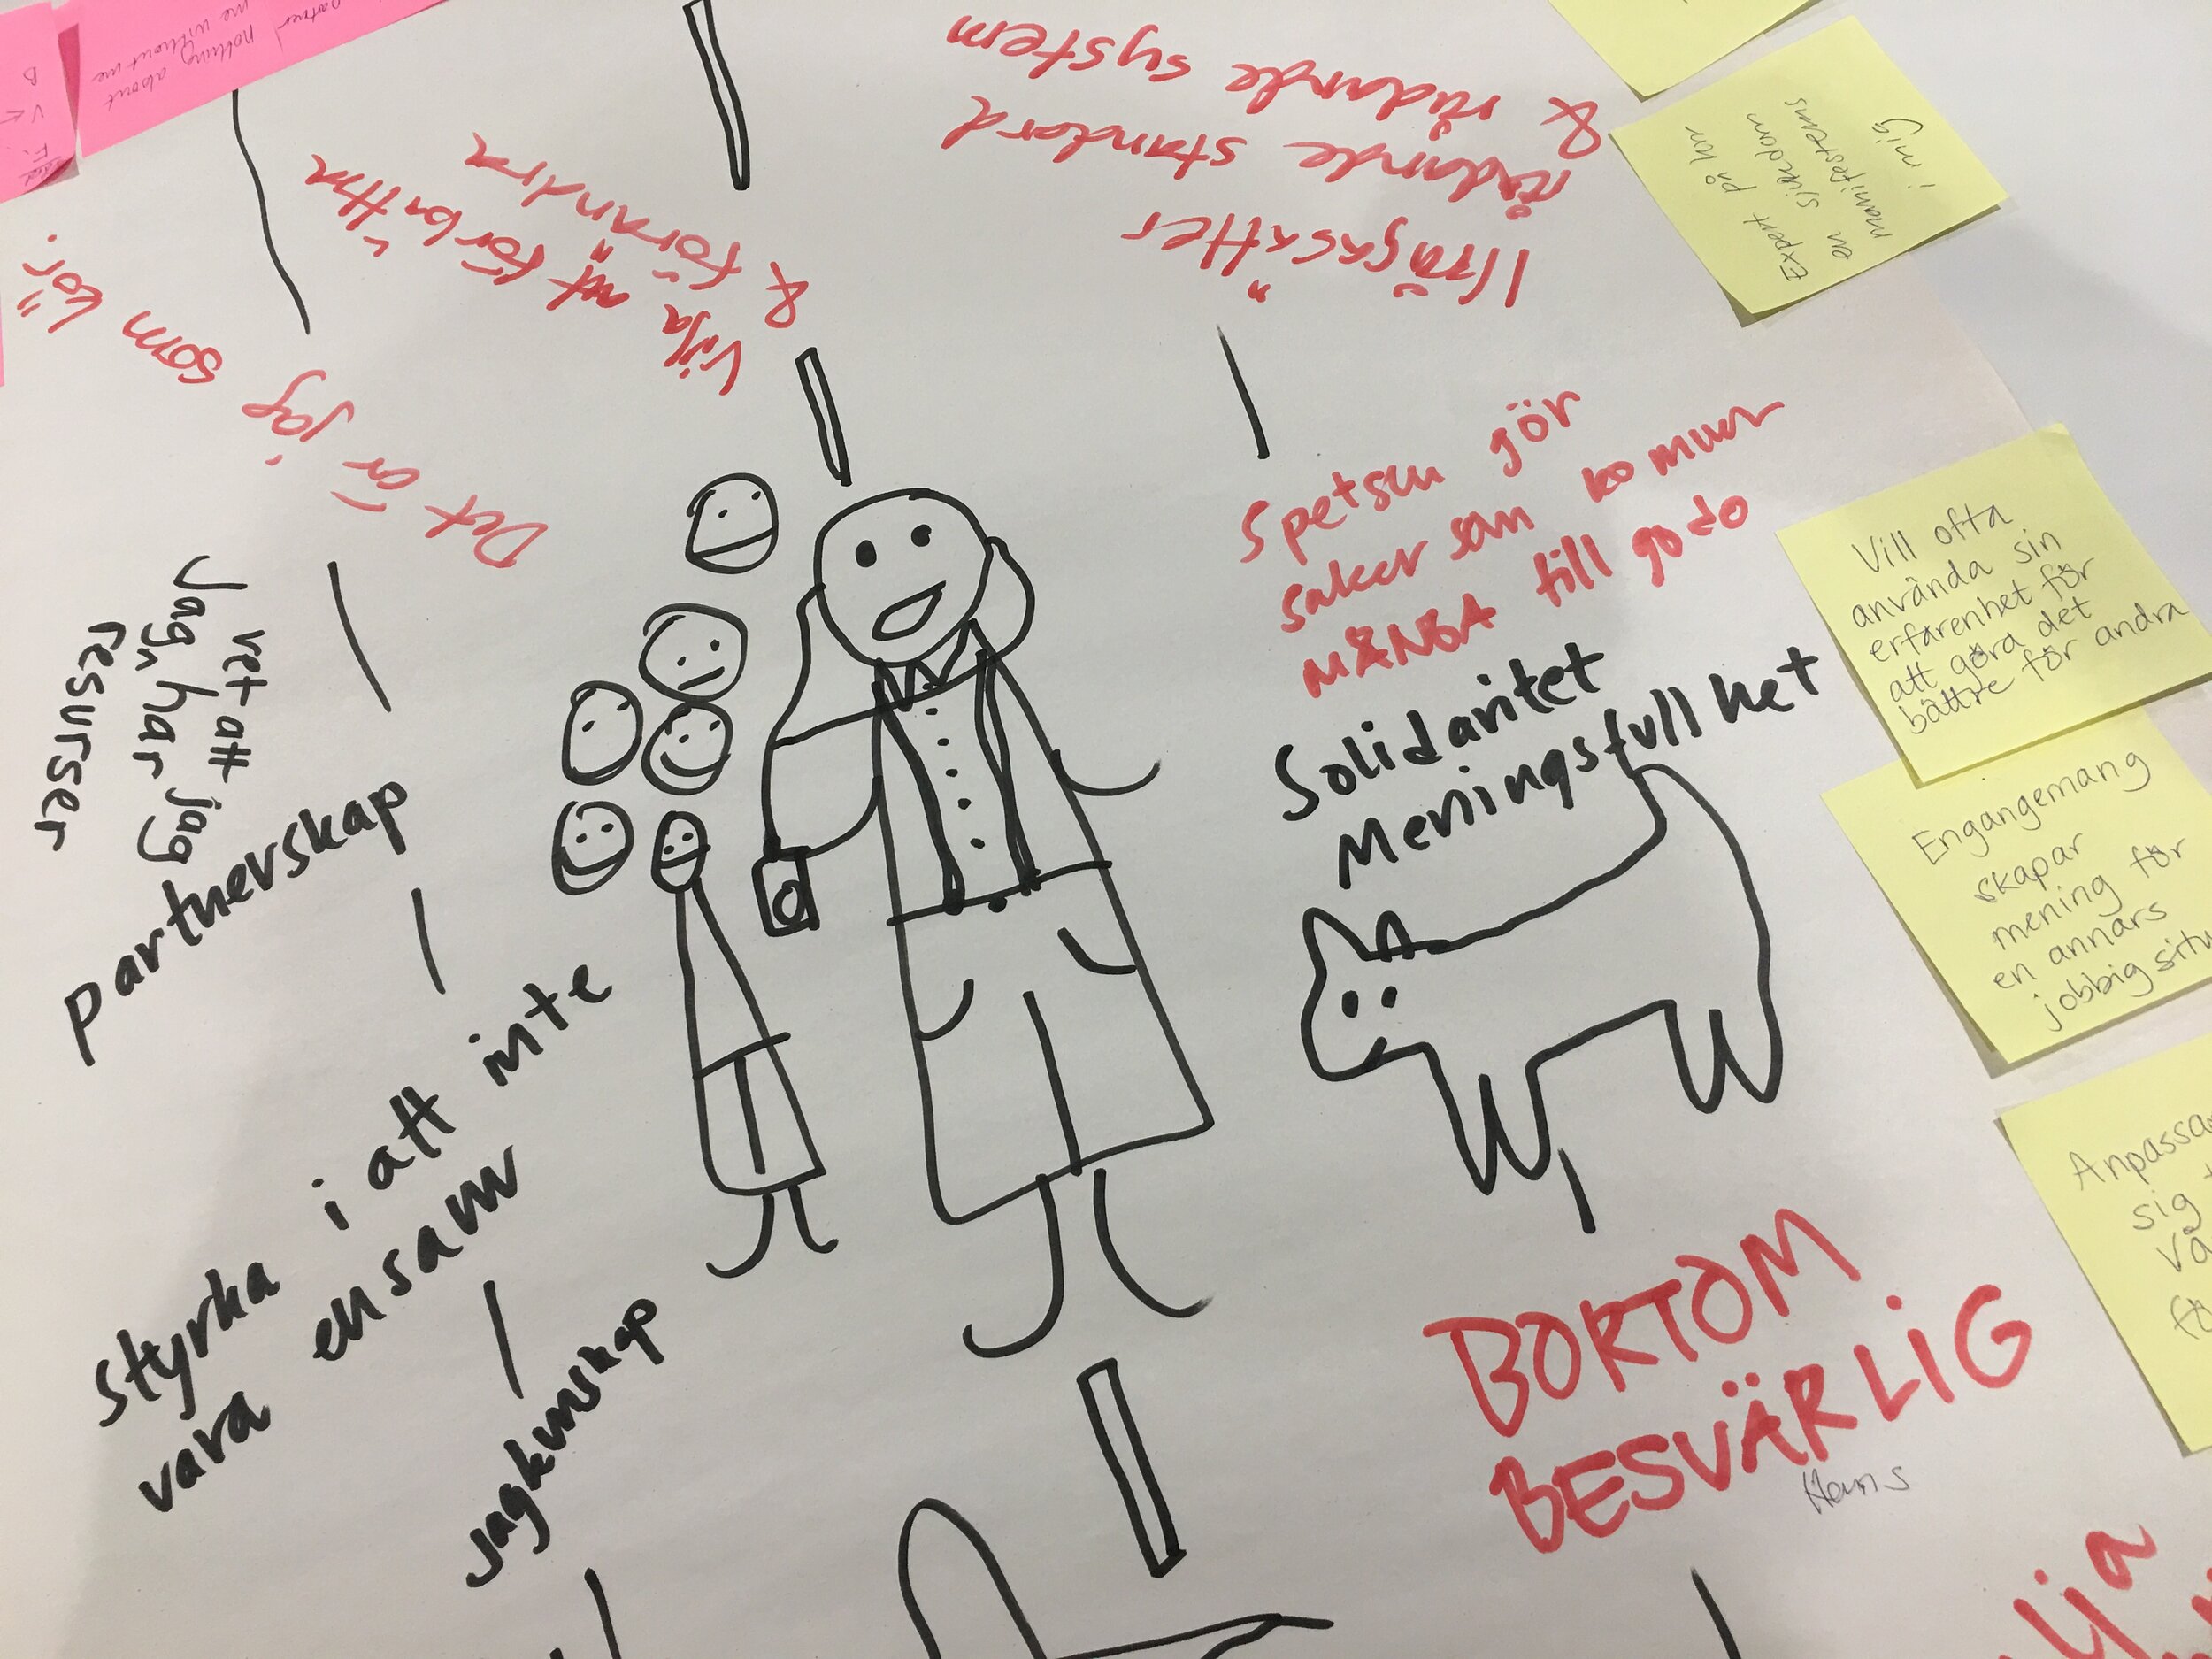 partner!
nothing about
me without me
Ifrågasätter
rådande standard
& rådande system
Vilja att förbättra
& förändra
Det är jag som bör.
Expert på hur
en sjukdom
manifesteras
i mig
Spetsen gör
saker som kommer
MÅNGA till godo
Solidaritet
Meningsfullhet
Vill ofta
använda sin
erfarenhet för
att göra det
bättre för andra
Engangemang
skapar
mening för
en annars
jobbig situ
Anpassa
sig
vet att
Jag har jag
resurser
partnerskap
Styrka i att inte
vara ensam
Jagkunskap
BORTOM
BESVÄRLIG
Hans
lja